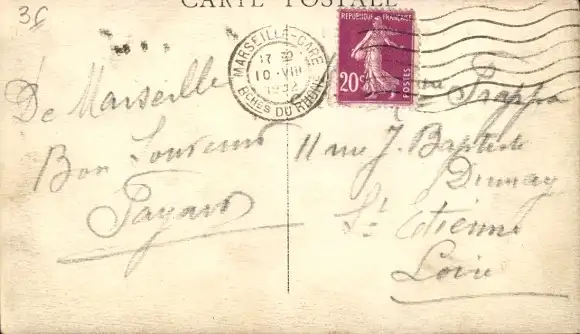 36
CARTE POSTALE
MARSEILLE-GARE
17
10 - VIII
1932
BCHES DU RHONE
REPUBLIQUE FRANÇAISE
20c
POSTES
De Marseille
Bon Souvenir
Payard
Trappa
11 rue J. Baptiste
Durnay
St Etienne
Loire